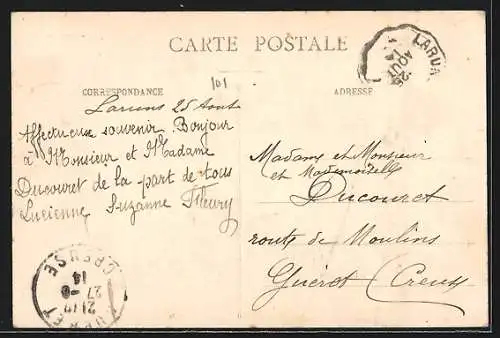 CARTE POSTALE
CORRESPONDANCE
101
25 Aout
Affectueux souvenir. Bonjour
à Monsieur et Madame
Ducouret de la part de tous
Lucienne Suzanne Fleury
ADRESSE
Madame et Monsieur
et Mademoiselle
Ducouret
route de Moulins
Guéret (Creuse
25
AOUT
14
CREUSE
14
27-8